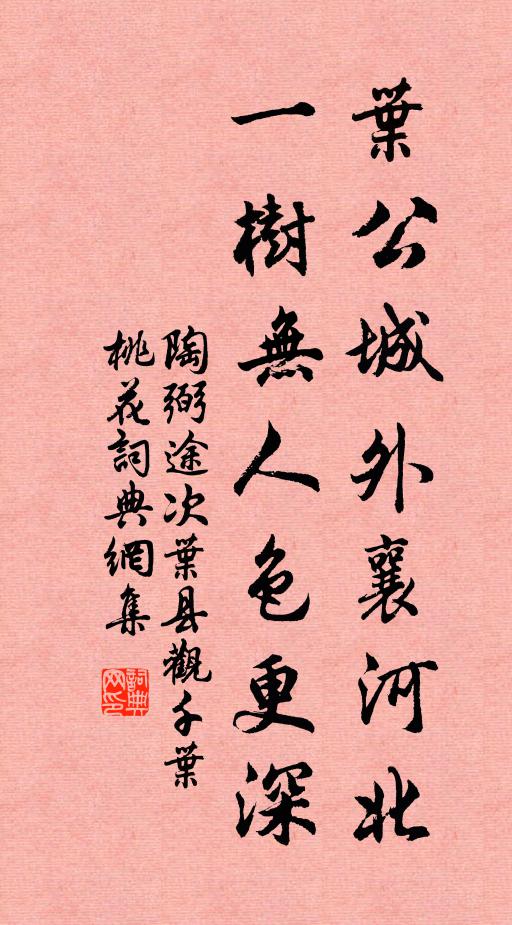 葉公城外襄河北
一樹無人色更深
陶弼途次葉县觀千葉
桃花詞典網集
詞典
网印